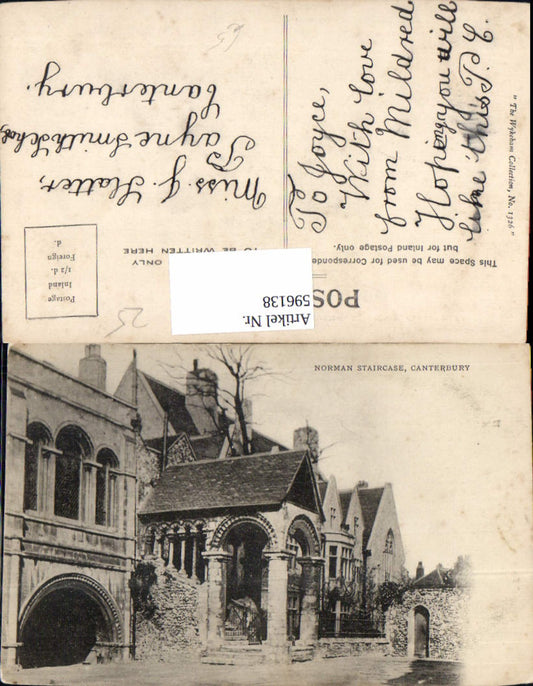 POS
This Space may be used for Correspondence
but for Inland Postage only.
ONLY
TO BE WRITTEN HERE
Postage
Inland
1/2 d.
Foreign
d.
To Joyce,
With love
from Mildred
Hoping you will
like this P.C.
Miss J.
Payne Smith School
Canterbury.
"The Wykeham Collection, No. 1326"
Artikel Nr.
596138
25
NORMAN STAIRCASE, CANTERBURY